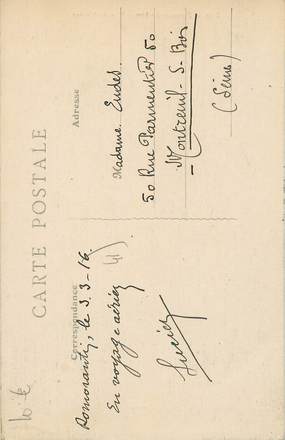 CARTE POSTALE
Correspondance
Adresse
Romorantin, le 3.3-16.
En voyage aérien
Lucien
Madame Eudes.
50 Rue Parmentier 50
Montreuil-S-Bois
(Seine)
41
10 €